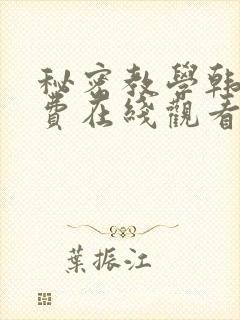 秘密教學韩
費在綫觀看
葉振江